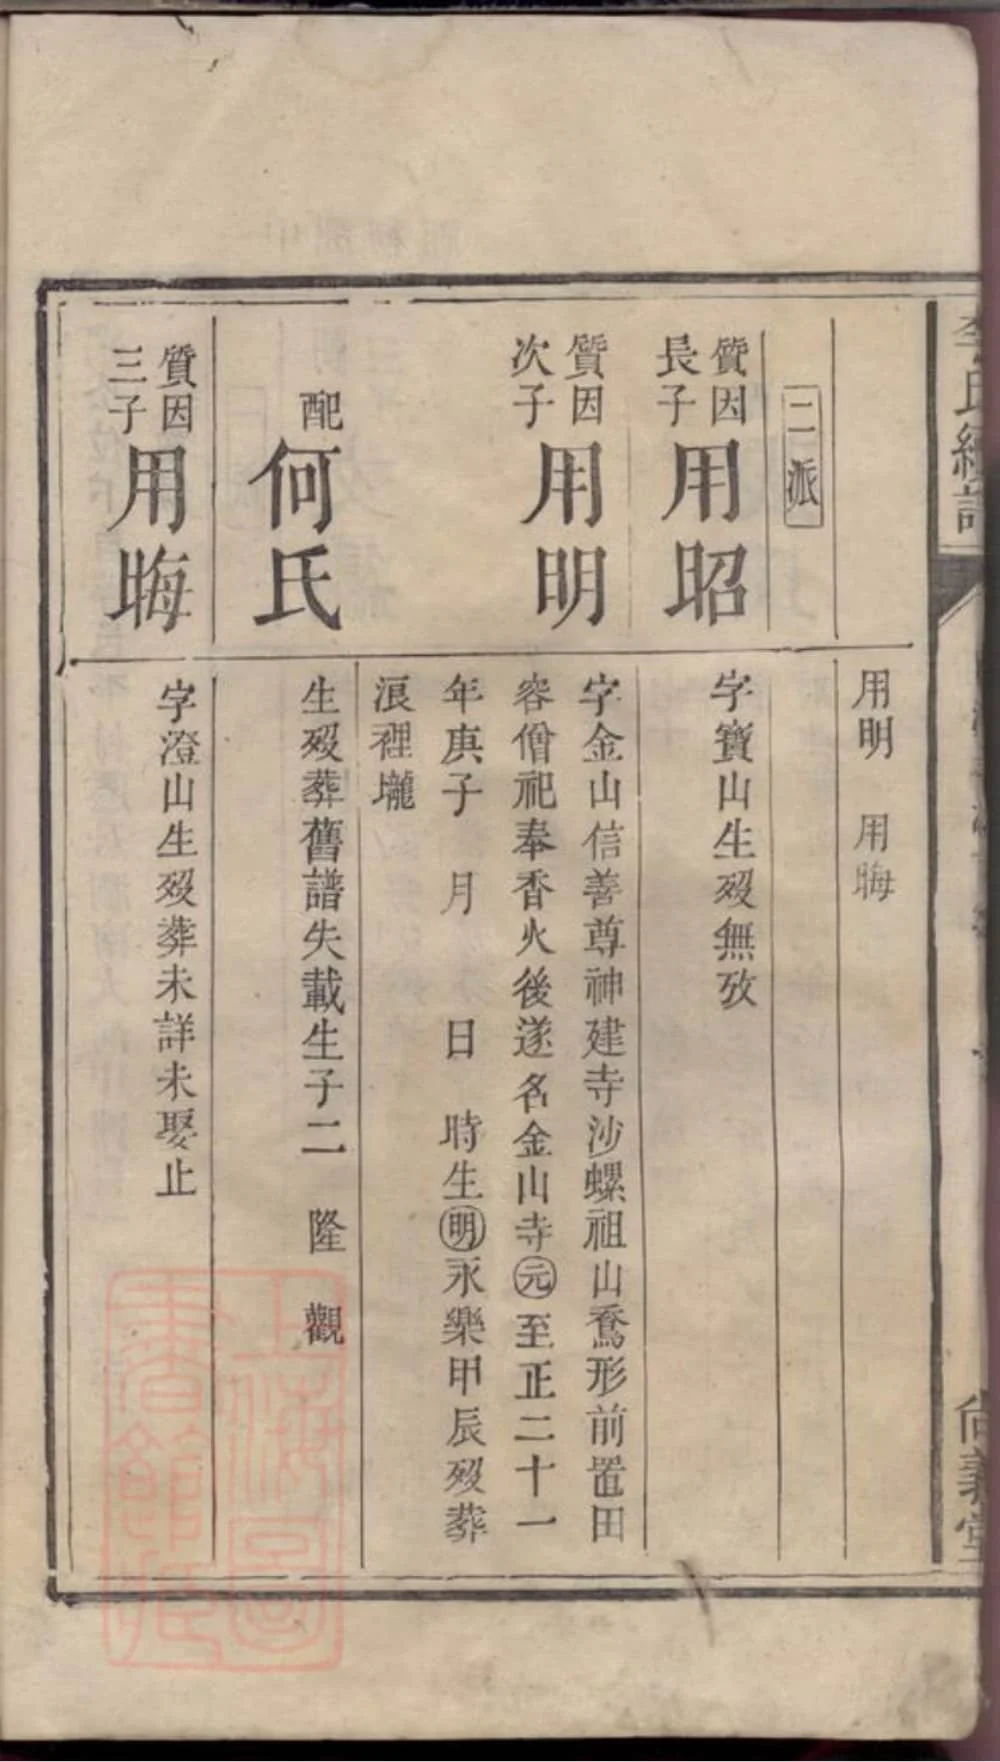 李氏續譜
尚義堂
用明 用晦
二派
質因
長子
用昭
字寶山生歿無攷
質因
次子
用明
字金山信善尊神建寺沙螺祖山鴌形前置田
容僧祀奉香火後遂名金山寺元至正二十一
年庚子 月 日 時生明永樂甲辰歿葬
浪裡壠
配
何氏
生歿葬舊譜失載生子二 隆 觀
質因
三子
用晦
字澄山生歿葬未詳未娶止
上海圖
書館藏